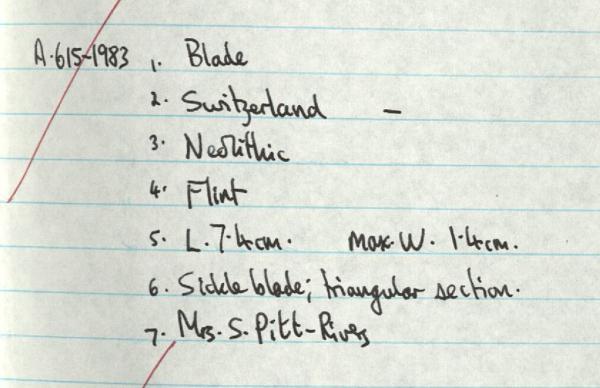 A.615-1983 1. Blade
2. Switzerland –
3. Neolithic
4. Flint
5. L. 7.4cm. Max. W. 1.4cm.
6. Sickle blade; triangular section.
7. Mrs. S. Pitt-Rivers